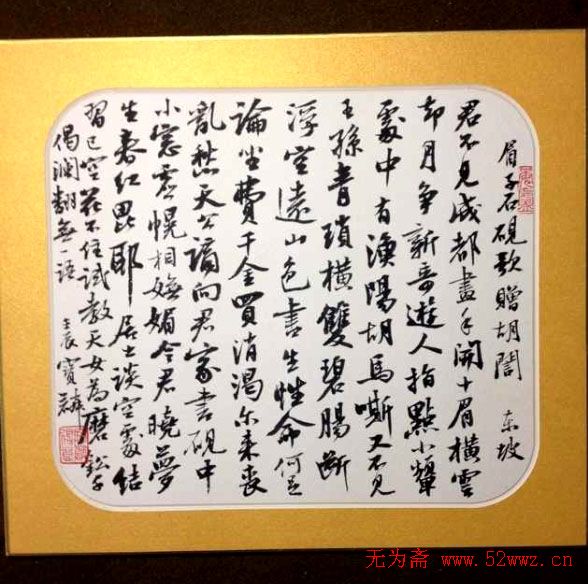 眉子石硯歌贈胡誾 东坡
君不見成都畫手開十眉橫雲
却月争新奇遊人指點小顰
處中有漁陽胡馬嘶又不見
王孫青瑣橫雙碧腸斷
浮空遠山色書生性命何足
論坐費千金買消渴尔来喪
亂愁天公謫向君家書硯中
小窓虛幌相嫵媚令君曉夢
生春红毘耶居士談空處結
習已空花不住試教天女為磨鈆千
偈瀾翻無一語 壬辰 寶麟
无为斋 www.52wwz.cn